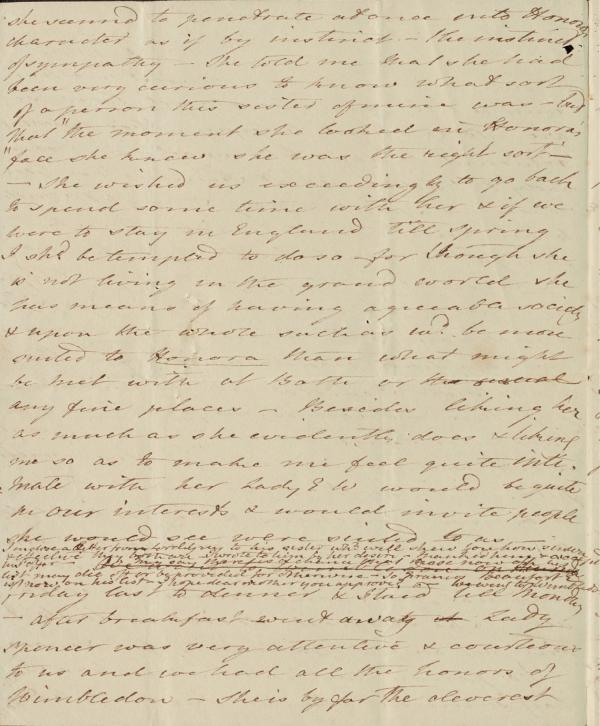 she seemed to penetrate at once into Honora's
character as if by instinct - the instinct
of sympathy - She told me that she had
been very curious to know what sort
of a person this sister of mine was - but
that "the moment she looked in Honora's
"face she knew she was the right sort -
- She wished us exceedingly to go back
to spend some time with her & if we
were to stay in England till spring
I shd. be tempted to do so - for though she
is not living in the grand world she
has means of having agreeable society
& upon the whole such as wd. be more
suited to Honora than what might
be met with at Bath or the usual
any fine places - Besides liking her
as much as she evidently does & liking
me so as to make me feel quite inti-
mate with her Lady E W would be quite
in our interests & would invite people
she would see were suited to us -
I enclose a letter from to his sister which will shew you how
I wrote to him
Friday last to dinner & staid till Monday
- after breakfast went away Lady
Spencer was very attentive & courteous
to us and we had all the honors of
Wimbledon - She is by far the cleverest